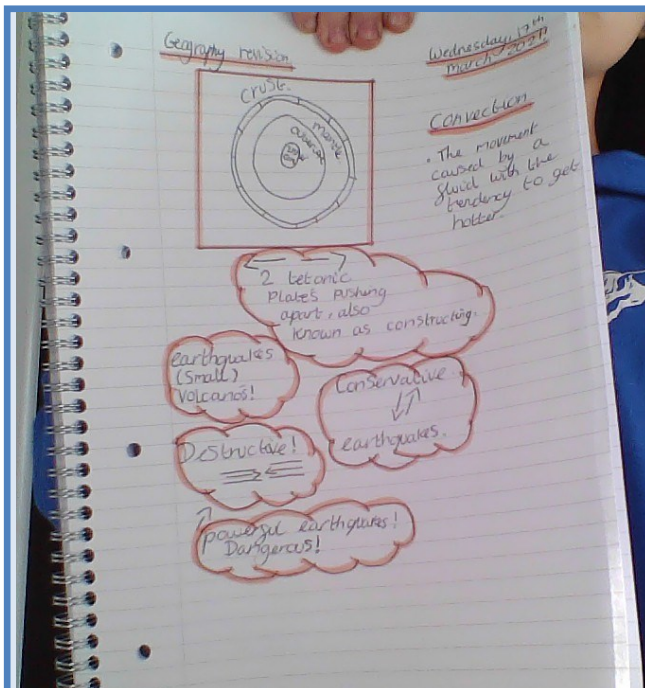 Geography revision
Wednesday, 17th
March 2021
crust.
mantle
outercore
inner
core
Convection
· The movement
caused by a
fluid with the
tendency to get
hotter.
2 tetonic
Plates pushing
apart, also
known as constructing.
earthquakes
(small)
Volcanos!
Conservative
earthquakes.
Destructive!
powerful earthquakes!
Dangerous!